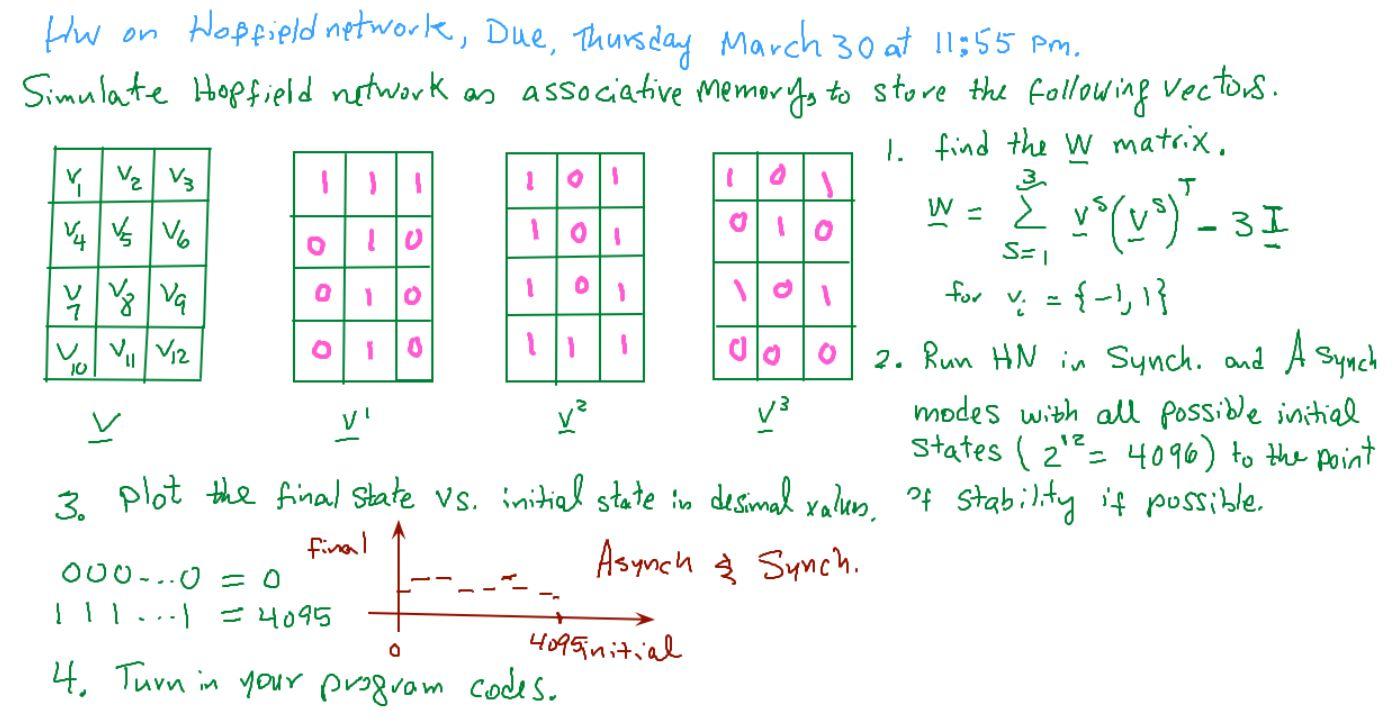 HW on Hopfield network, Due, Thursday March 30 at 11:55 pm.
Simulate Hopfield network as associative Memory, to store the following vectors.
V1 V2 V3
V4 V5 V6
V7 V8 V9
V10 V11 V12
V
1 1 1
0 1 0
0 1 0
0 1 0
V¹
1 0 1
1 0 1
1 0 1
1 1 1
V²
1 0 1
0 1 0
1 0 1
0 0 0
V³
1. find the W matrix.
W = Σ_{S=1}^{3} V^S (V^S)^T - 3 I
for vi = {-1, 1}
2. Run HN in Synch. and A Synch
modes with all possible initial
states ( 2^12 = 4096) to the point
of stability if possible.
3. Plot the final state vs. initial state in desimal values.
000---0 = 0
111...1 = 4095
final
0
4095
initial
Asynch & Synch.
4. Turn in your program codes.